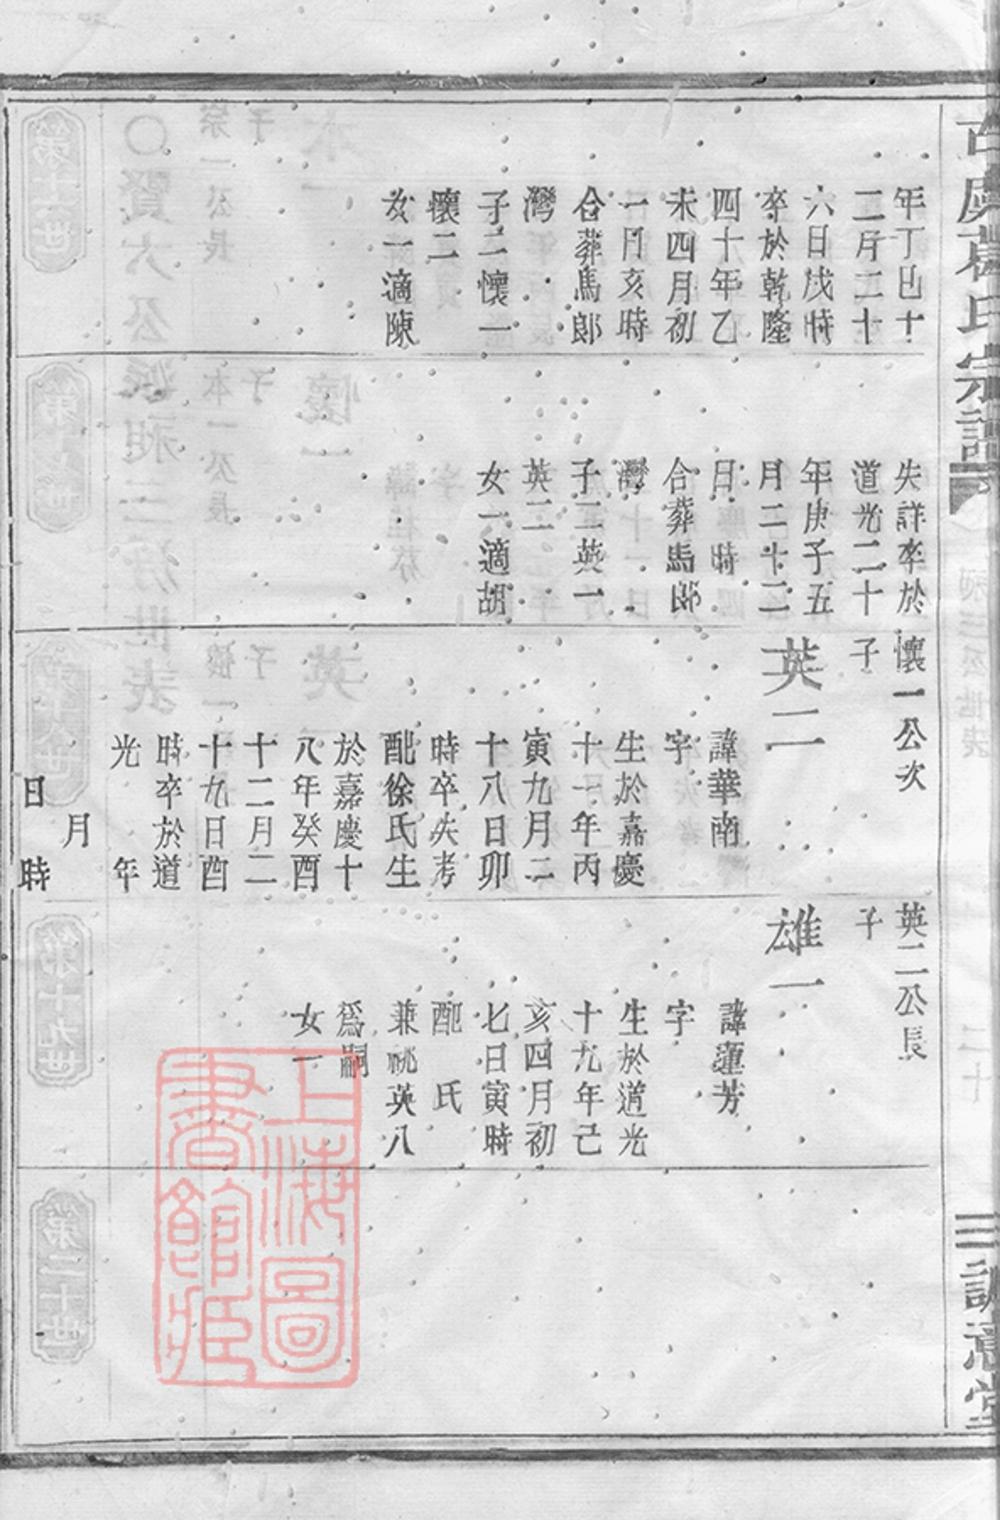 年丁巳十
二月二十
六日戌時
卒於乾隆
四十年乙
未四月初
一日亥時
合葬馬郎
灣
子二懷一
懷二
女一適陳
失詳卒於
道光二十
年庚子五
月二十二
日 時
合葬馬郎
灣
子二英一
英二
女一適胡
懷一公次
子
英二
諱華南
字
生於嘉慶
十一年丙
寅九月二
十八日卯
時卒失考
配徐氏生
於嘉慶十
八年癸酉
十二月二
十九日酉
時卒於道
光 年
月
日 時
英二公長
子
雄一
諱蘊芳
字
生於道光
十九年己
亥四月初
七日寅時
配 氏
兼祧英八
為嗣
女一
氏宗譜
上海圖
書館藏